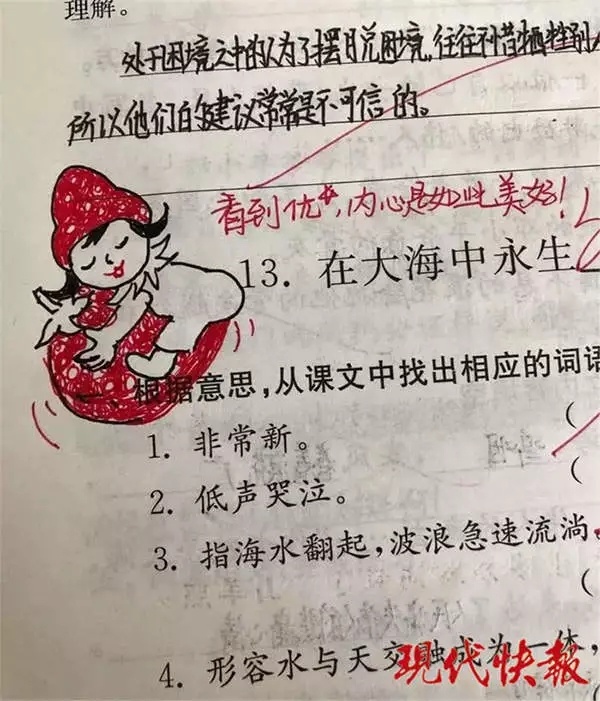 理解。
处于困境之中的人为了摆脱困境,往往不惜牺牲别
所以他们的建议常常是不可信的。
看到优☆,内心是如此美好!
13. 在大海中永生
一、根据意思,从课文中找出相应的词语
1. 非常新。 (
2. 低声哭泣。 (
3. 指海水翻起,波浪急速流淌。
(
4. 形容水与天交融成为一体,
现代快报